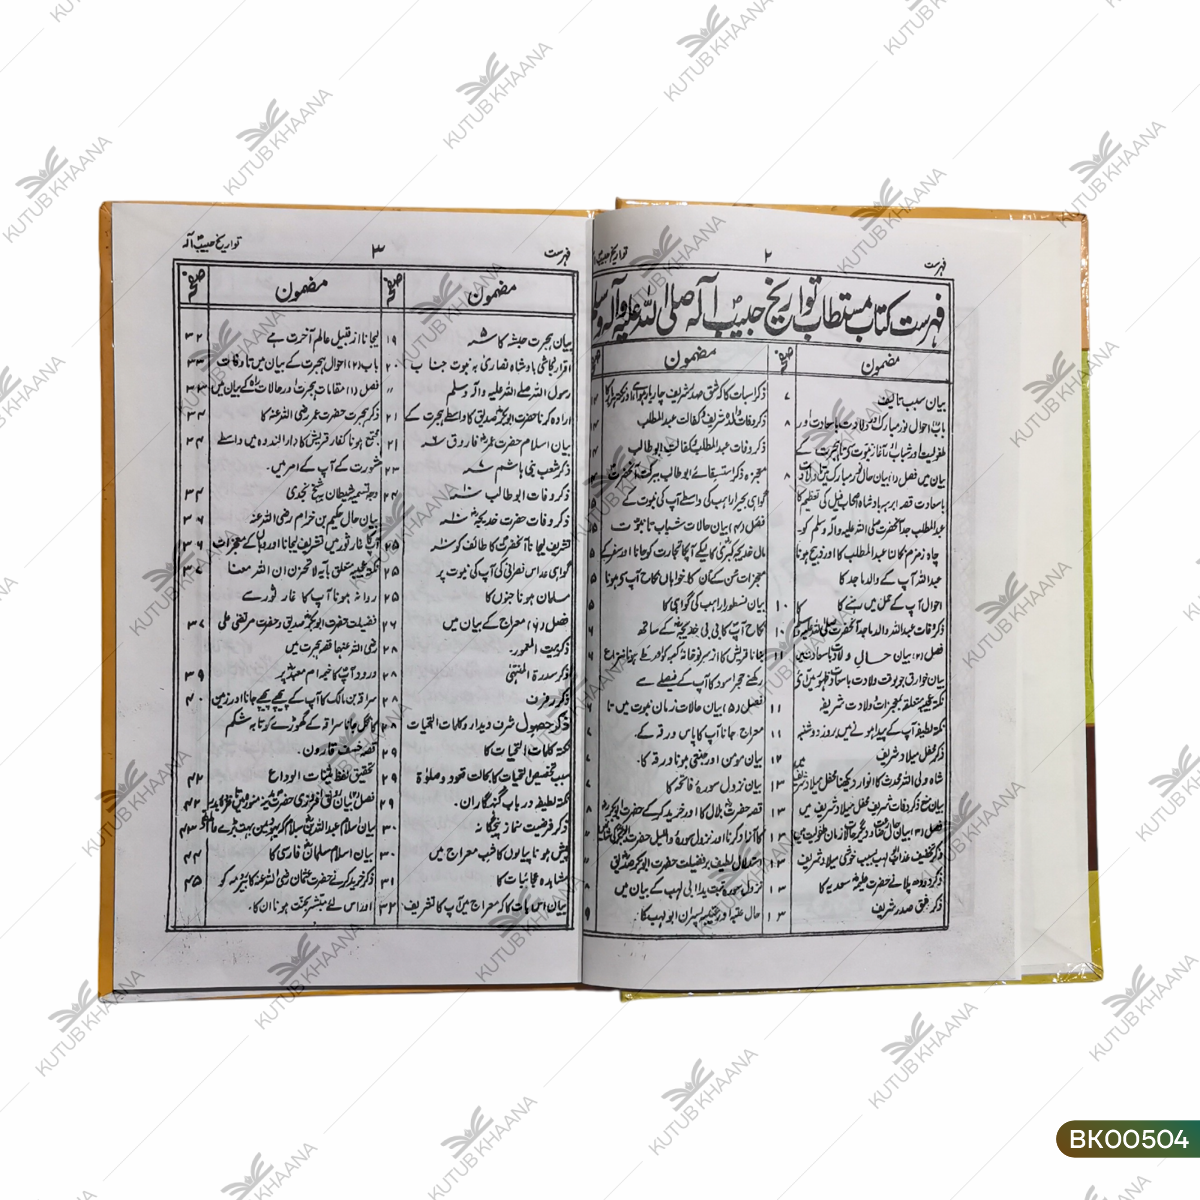 فہرست
۲
تواریخ حبیب
فہرست کتاب مستطاب تواریخ حبیب الٰہ صلی اللہ علیہ وآلہ وسلم
مضمون
صفحہ
بیان سبب تالیف ۷
باب احوال نور مبارک اور ولادت باسعادت اور ۸
طفولیت اور شباب و آغاز نبوت کا تا ہجرت کے
بیان میں فصل (۱) بیان حال نور مبارک میں تا ولادت ۸
باسعادت قصہ ابرہہ بادشاہ اصحاب فیل کی تعظیم کا
عبدالمطلب جد آنحضرت صلی اللہ علیہ وآلہ وسلم کو۔
چاہ زمزم نکالنا عبدالمطلب کا اور ذبیح ہونا
عبداللہ آپ کے والد ماجد کا
احوال آپ کے حمل میں رہنے کا ۱۰
ذکر وفات عبداللہ والد ماجد آنحضرت صلی اللہ علیہ وسلم ۱۰
فصل (۲) بیان حال ولادت باسعادت میں ۱۱
بیان خوارق جو بوقت ولادت باسعادت ظہور میں آئی
نکتہ عجیبہ متعلقہ بمعجزات ولادت شریف ۱۱
نکتہ لطیفہ آپ کے پیدا ہونے میں بروز دوشنبہ ۱۱
ذکر محفل میلاد شریف ۱۲
شاہ ولی اللہ محدث کا انوار دیکھنا محفل میلاد شریف میں ۱۳
بیان منع ذکر وفات شریف محفل میلاد شریف میں ۱۳
ذکر تخفیف عذاب ابی لہب بسبب خوشی میلاد شریف ۱۳
ذکر دودھ پلانے حضرت حلیمہ سعدیہ کا ۱۳
ذکر شق صدر شریف ۱۳
مضمون
ذکر اسبات کا کہ شق صدر شریف چار بار ہوا
ذکر وفات والدہ شریف و کفالت عبدالمطلب
ذکر وفات عبدالمطلب و کفالت ابوطالب
معجزہ ذکر استسقائے ابوطالب ببرکت آنحضرت
گواہی بحیرا راہب کی واسطے آپ کی نبوت کے
فصل (۴) بیان حالات شباب تا نبوت
مال خدیجہ کبریٰ کا لیکے آپکا تجارت کو جانا اور سفر کے
بیان نسطورا راہب کی گواہی کا
نکاح آپ کا بی بی خدیجہ کے ساتھ
رکھنے حجر اسود کا آپ کے فیصلے سے
فصل (۵) بیان حالات زمان نبوت میں تا
معراج جانا آپ کا پاس ورقہ کے۔
بیان مومن اور جنتی ہونا ورقہ کا۔
بیان نزول سورۂ فاتحہ کا
قصہ حضرت بلال کا اور خرید کر کے حضرت ابوبکر
کا آزاد کرنا اور نزول سورۂ واللیل حضرت
استدلال لطیف بر فضیلت حضرت ابوبکر صدیق
نزول سورۂ تبت یدا ابی لہب کے بیان میں
حال عتبہ اور عتیبہ پسران ابولہب کا۔
فہرست
۳
تواریخ حبیب الٰہ
مضمون
صفحہ
بیان ہجرت حبشہ کا ۱۹
اقرار نجاشی بادشاہ نصاریٰ بہ نبوت جناب ۲۰
رسول اللہ صلے اللہ علیہ وآلہ وسلم 〃
ارادہ کرنا حضرت ابوبکر صدیق کا واسطے ہجرت کے ۲۱
بیان اسلام حضرت عمر فاروق ۲۱
ذکر شعب بنی ہاشم ۲۳
ذکر وفات ابوطالب ۲۴
ذکر وفات حضرت خدیجہ
تشریف لیجانا آنحضرت کا طائف کو ۲۵
گواہی عداس نصرانی کی آپ کی نبوت پر ۲۵
مسلمان ہونا جنوں کا ۲۵
فصل (۶) معراج کے بیان میں ۲۶
ذکر بیت المعمور۔ ۲۸
ذکر سدرۃ المنتہیٰ ۲۸
ذکر رفرف ۲۸
ذکر حصول شرف دیدار و کلمات التحیات ۲۸
نکتہ کلمات التحیات کا ۲۹
سبب تخصیص التحیات کا بحالت قعود وصلوٰۃ ۲۹
نکتہ لطیف در باب گنہگاران۔ ۲۹
ذکر فرضیت نماز پنجگانہ ۳۰
پیش ہونا پیالوں کا شب معراج میں ۳۰
مشاہدہ عجائبات کا ۳۱
بیان اس بات کا کہ معراج میں آپ کا تشریف ۳۲
مضمون
صفحہ
لیجانا از قبیل عالم آخرت ہے ۳۲
باب (۲) احوال ہجرت کے بیان میں تا وفات ۳۳
فصل (۱) مقامات ہجرت اور حالات راہ کے بیان میں ۳۳
ذکر ہجرت حضرت عمر رضی اللہ عنہ کا ۳۴
جمع ہونا کفار قریش کا دارالندوہ میں واسطے ۳۴
مشورت کے آپ کے امر میں۔
وجہ تسمیہ شیطان بہ شیخ نجدی ۳۴
بیان حال حکیم بن حزام رضی اللہ عنہ ۳۶
آپکا غار ثور میں تشریف لیجانا اور وہاں کے معجزات ۳۶
نکتہ عجیبہ متعلق بآیہ لاتحزن ان اللہ معنا ۳۷
روانہ ہونا آپ کا غار ثور سے
فضیلت حضرت ابوبکر صدیق و حضرت مرتضیٰ علی ۳۷
رضی اللہ عنہما قصہ ہجرت میں
ورود آپ کا خیمہ ام معبد پر ۳۹
سراقہ بن مالک کا آپ کے پیچھے پیچھے جانا اور زمین ۴۰
کا نگل جانا سراقہ کے گھوڑے کو تا بہ شکم
قصہ خسف قارون۔
تحقیق لفظ ثنیات الوداع ۴۲
بیان اسلام عبداللہ بن سلام کہ یہود میں بہت بڑے عالم ۴۳
بیان اسلام سلمان فارسی کا ۴۴
ذکر خرید کرنے حضرت عثمان رضی اللہ عنہ کا بیر رومہ کو ۴۵
اور اس لئے مبشر بجنت ہونا ان کا۔
KUTUB KHAANA
BK00504